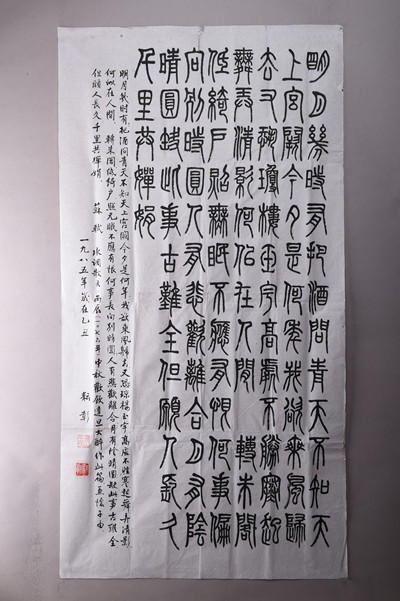 明月幾時有把酒問青天不知天
上宮闕今夕是何年我欲乘風歸
去又恐瓊樓玉宇高處不勝寒起
舞弄清影何佀在人間 轉朱閣
低綺戶照無眠不應有恨何事偏
向別時圓人有悲歡離合月有陰
晴圓缺此事古難全但願人長久
千里共嬋娟
明月幾时有把酒问青天不知天上宫闕今夕是何年我欲乘風歸去又恐琼楼玉宇高處不胜寒起舞弄清影
何似在人間 轉朱閣低綺户照无眠不應有恨何事長向别時圆人有悲歡離合月有陰晴圆缺此事古難全
但願人長久千里共嬋娟 蘇軾 水调歌头 丙辰一〇七六年中秋歡飲達旦大醉作此篇兼懷子由
一九八五年 歲在乙丑 彰